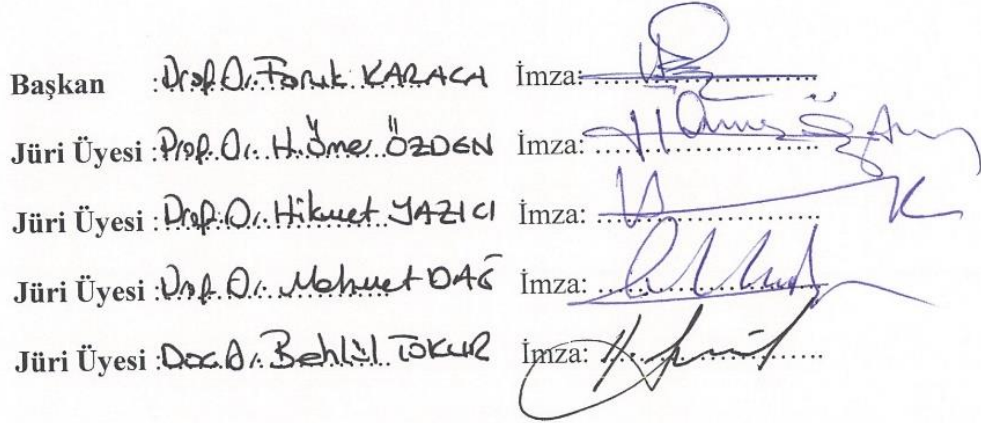 Başkan : Prof. Dr. Faruk KARACA İmza:
Jüri Üyesi : Prof. Dr. H. Ömer ÖZDEN İmza:
Jüri Üyesi : Prof. Dr. Hikmet YAZICI İmza:
Jüri Üyesi : Prof. Dr. Mehmet DAĞ İmza:
Jüri Üyesi : Doç. Dr. Behlül TOKUR İmza: